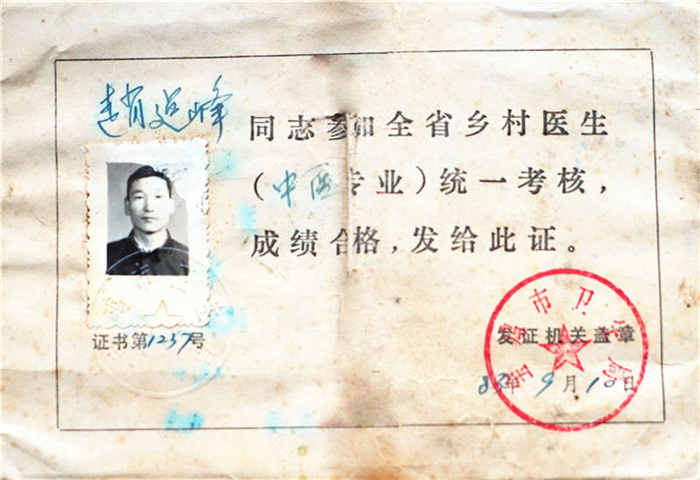 赵迎峰
同志参加全省乡村医生
(中医专业)统一考核，
成绩合格，发给此证。
证书第1237号
发证机关盖章
市卫生局
83年9月18日